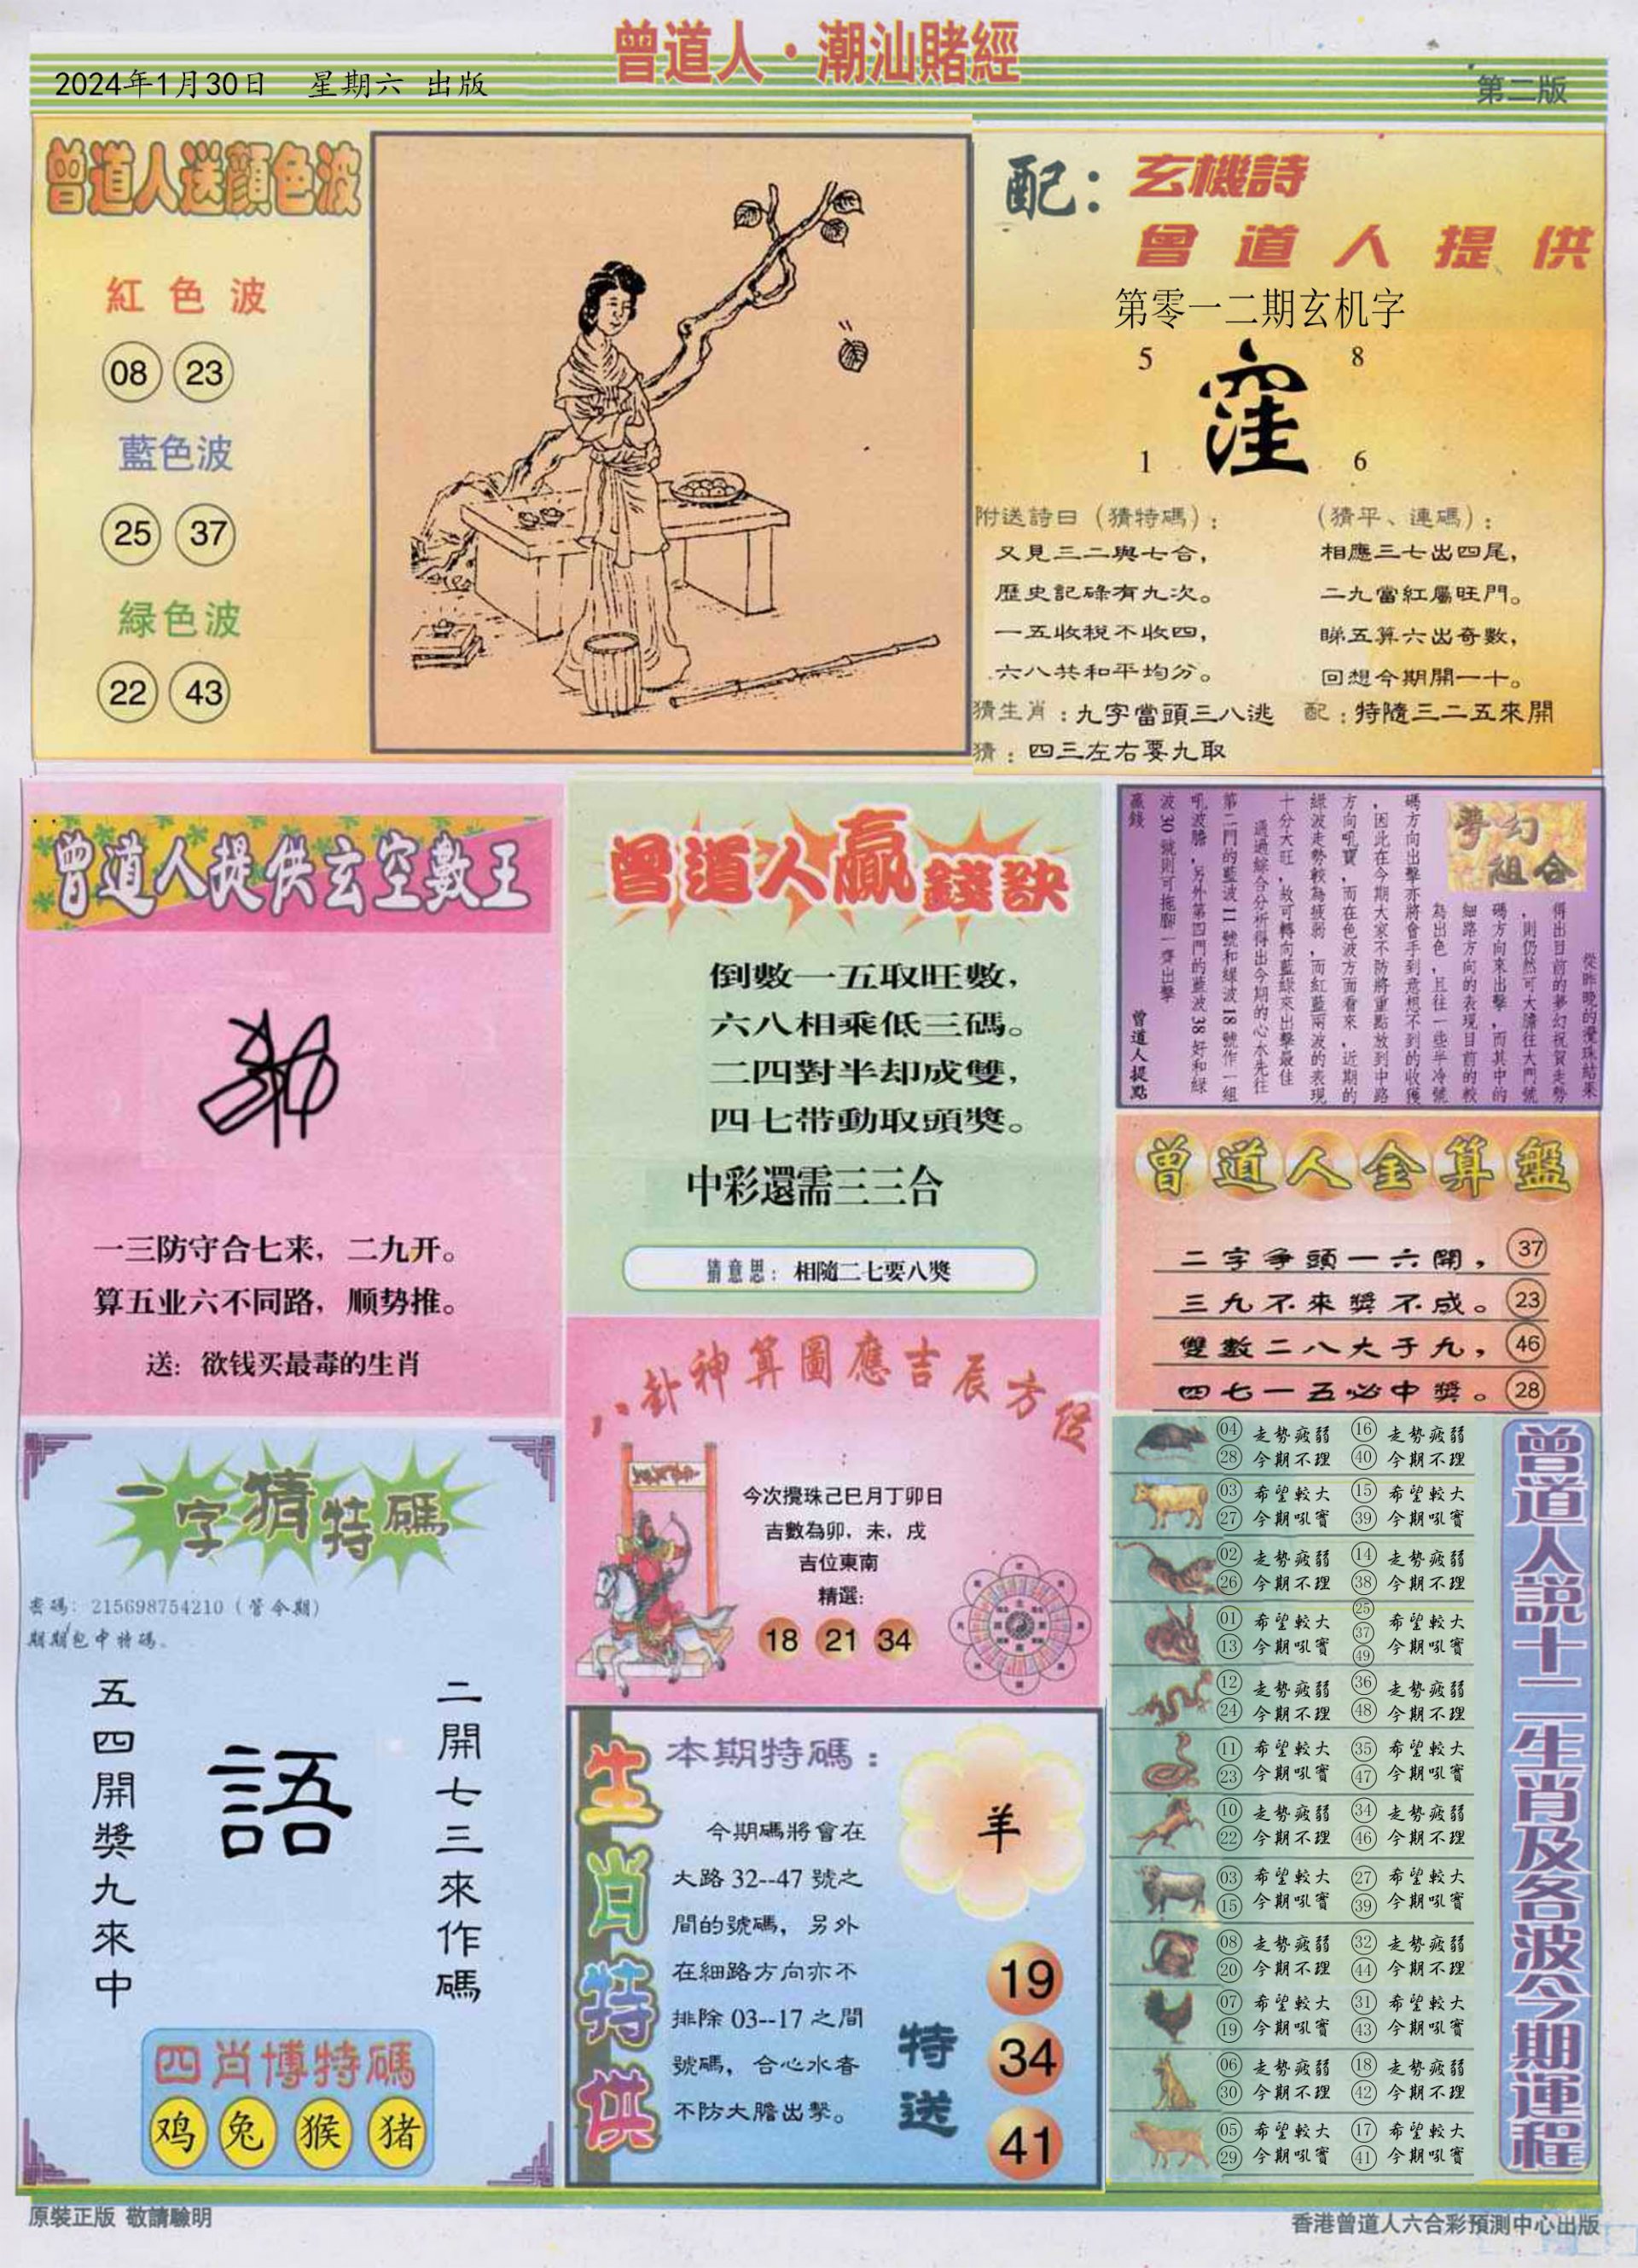 曾道人·潮汕賭經
2024年1月30日 星期六 出版
第二版
曾道人送顏色波
紅色波
08 23
藍色波
25 37
緑色波
22 43
配：玄機詩
曾道人提供
第零一二期玄机字
5 8
窪
1 6
附送詩曰（猜特碼）：
又見三二與七合，
歷史記碌有九次。
一五收稅不收四，
六八共和平均分。
（猜平、連碼）：
相應三七出四尾，
二九當紅屬旺門。
睇五算六出奇數，
回想今期開一十。
猜生肖：九字當頭三八逃
配：特隨三二五來開
猜：四三左右要九取
曾道人提供玄空數王
一三防守合七来，二九开。
算五业六不同路，顺势推。
送：欲钱买最毒的生肖
曾道人贏錢訣
倒數一五取旺數，
六八相乘低三碼。
二四對半却成雙，
四七带動取頭獎。
中彩還需三三合
猜意思：相隨二七要八獎
夢幻
組合
從昨晚的攪珠結果
得出目前的夢幻祝賀走勢
，則仍然可大膽往大門號
碼方向來出擊，而其中的
細路方向的表現目前的較
為出色，且往一些半冷號
碼方向出擊亦將會手到意想不到的收獲
，因此在今期大家不防將重點放到中路
方向吼寶，而在色波方面看來，近期的
綠波走勢較為疲弱，而紅藍兩波的表現
十分大旺，故可轉向藍綠來出擊最佳
通過綜合分析得出今期的心水先往
第二門的藍波11號和綠波18號作一組
吼波膽，另外第四門的藍波38好和綠
波30號則可拖腳一齊出擊
贏錢
曾道人提點
曾道人金算盤
二字争頭一六開，37
三九不來獎不成。23
雙數二八大于九，46
四七一五必中獎。28
八卦神算圖應吉辰方位
今次攪珠己巳月丁卯日
吉數為卯，未，戌
吉位東南
精選：
18 21 34
一字猜特碼
密碼：215698754210（管今期）
期期包中特碼。
二開七三來作碼
語
五四開獎九來中
四肖博特碼
鸡 兔 猴 猪
生肖特供
本期特碼：
今期碼將會在
大路32--47號之
間的號碼，另外
在細路方向亦不
排除03--17之間
號碼，合心水者
不防大膽出擊。
羊
特送
19
34
41
曾道人說十二生肖及各波今期運程
04 走勢疲弱 16 走勢疲弱
28 今期不理 40 今期不理
03 希望較大 15 希望較大
27 今期吼寶 39 今期吼寶
02 走勢疲弱 14 走勢疲弱
26 今期不理 38 今期不理
01 希望較大 25 37 希望較大
13 今期吼寶 49 今期吼寶
12 走勢疲弱 36 走勢疲弱
24 今期不理 48 今期不理
11 希望較大 35 希望較大
23 今期吼寶 47 今期吼寶
10 走勢疲弱 34 走勢疲弱
22 今期不理 46 今期不理
03 希望較大 27 希望較大
15 今期吼寶 39 今期吼寶
08 走勢疲弱 32 走勢疲弱
20 今期不理 44 今期不理
07 希望較大 31 希望較大
19 今期吼寶 43 今期吼寶
06 走勢疲弱 18 走勢疲弱
30 今期不理 42 今期不理
05 希望較大 17 希望較大
29 今期吼寶 41 今期吼寶
原裝正版 敬請驗明
香港曾道人六合彩預測中心出版